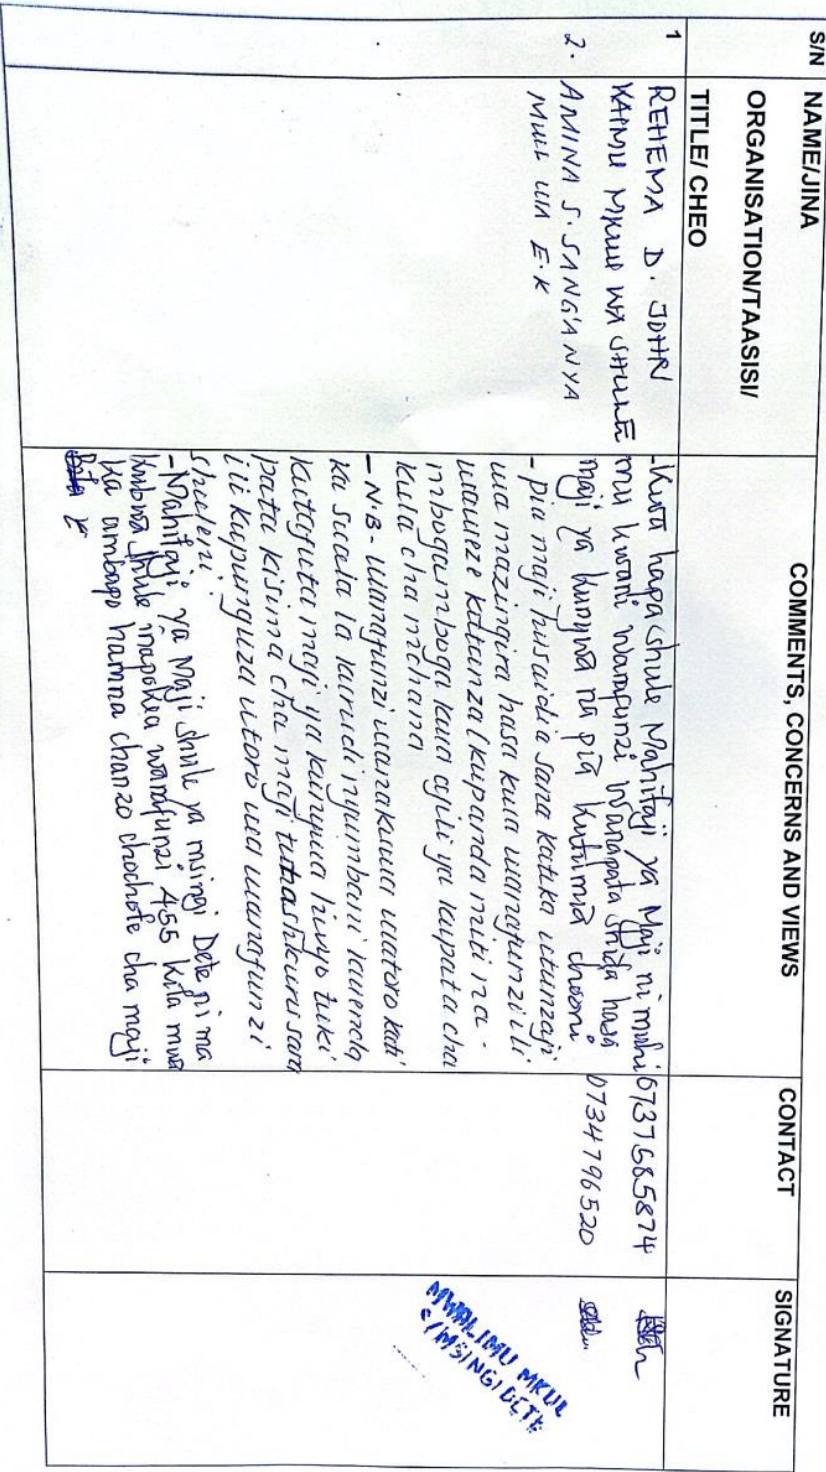 S/N
NAME/JINA
ORGANISATION/TAASISI/
TITLE/ CHEO
COMMENTS, CONCERNS AND VIEWS
CONTACT
SIGNATURE
1
REHEMA D. JOHN
KAIMU MKUU WA SHULE
2. AMINA S. SANG'ANYA
MWL WA E.K
-Kwa hapa shule Mahitaji ya Maji ni muhi
mu kwani wanafunzi wanapata shida hasa
maji ya kunywa na pia kutumia chooni
- pia maji husaidia sana katika utunzaji
wa mazingira hasa kwa wanafunzi ili
waweze kutunza (kupanda miti na -
mbogamboga kwa ajili ya kupata cha
kula cha mchana
- N.B- wanafunzi wanakuwa watoro kati
ka suala la kurudi nyumbani kwenda
kutafuta maji ya kunywa hivyo tuki
pata kisima cha maji tutashukuru sana
ili kupunguza utoro wa wanafunzi
shuleni.
-Mahitaji ya Maji shule ya msingi Dete ni ma
kubwa shule inapokea wanafunzi 455 kila mwa
ka ambapo hamna chanzo chochote cha maji
0737685874
0734796520
MWALIMU MKUU
S/MSINGI DETE